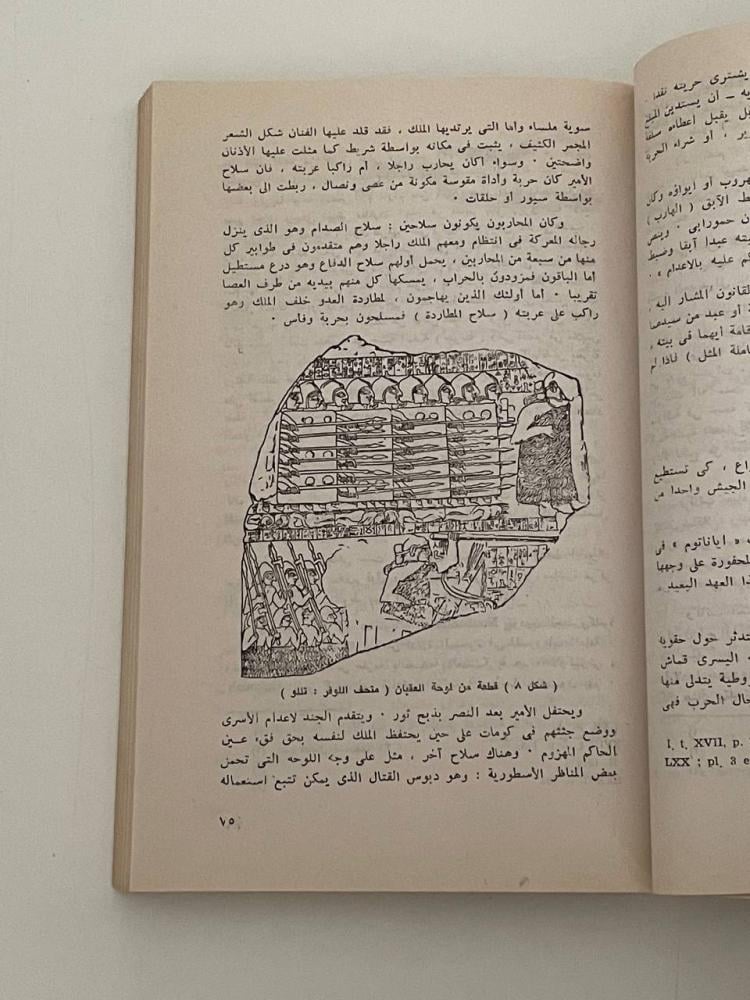 سوية ملساء وأما التى يرتديها الملك ، فقد قلد عليها الفنان شكل الشعر
المجمر الكثيف ، يثبت فى مكانه بواسطة شريط كما مثلت عليها الأذنان
واضحتين ٠ وسواء أكان يحارب راجلا ، أم راكبا عربته ، فان سلاح
الأمير كان حربة وأداة مقوسة مكونة من عصى ونصال ، ربطت الى بعضها
بواسطة سيور أو حلقات ٠
وكان المحاربون يكونون سلاحين : سلاح الصدام وهو الذى ينزل
رجاله المعركة فى انتظام ومعهم الملك راجلا وهم متقدمون فى طوابير كل
منها من سبعة من المحاربين ، يحمل أولهم سلاح الدفاع وهو درع مستطيل
أما الباقون فمزودون بالحراب ، يمسكها كل منهم بيديه من طرف العصا
تقريبا ٠ أما أولئك الذين يهاجمون ، لمطاردة العدو خلف الملك وهو
راكب على عربته ( سلاح المطاردة ) فمسلحون بحربة وفأس ٠
( شكل ٨ ) قطعة من لوحة العقبان ( متحف اللوفر : تللو )
ويحتفل الأمير بعد النصر بذبح ثور ٠ ويتقدم الجند لاعدام الأسرى
ووضع جثثهم فى كومات على حين يحتفظ الملك لنفسه بحق فقء عين
الحاكم المهزوم ٠ وهناك سلاح آخر ، مثل على وجه اللوحه التى تحمل
بعض المناظر الأسطورية : وهو دبوس القتال الذى يمكن تتبع استعماله
٧٥
يشترى حريته نقدا
يه ــ أن يستدين المبلغ
بل يقبل أعطاءه سلفا
ير ، أو شراء الحرية
هروب أو ايواؤه وكان
ط الآبق ( الهارب )
ن حمورابى ٠ وينص
يته عبدا آبقا وضبط
م عليه بالاعدام » ٠
لقانون المشار اليه
ة أو عبد من سيدهما
قامة أيهما فى بيته ،
عاملة المثل ) فاذا لم
اع ، كى تستطيع
الجيش واحدا من
« اياناتوم » فى
لمحفورة على وجهها
ذا العهد البعيد
تدثر حول حقويه
ه اليسرى قماش
روطية يتدلى منها
حال الحرب فهى
I, t. XVII, p.
LXX ; pl. 3 e